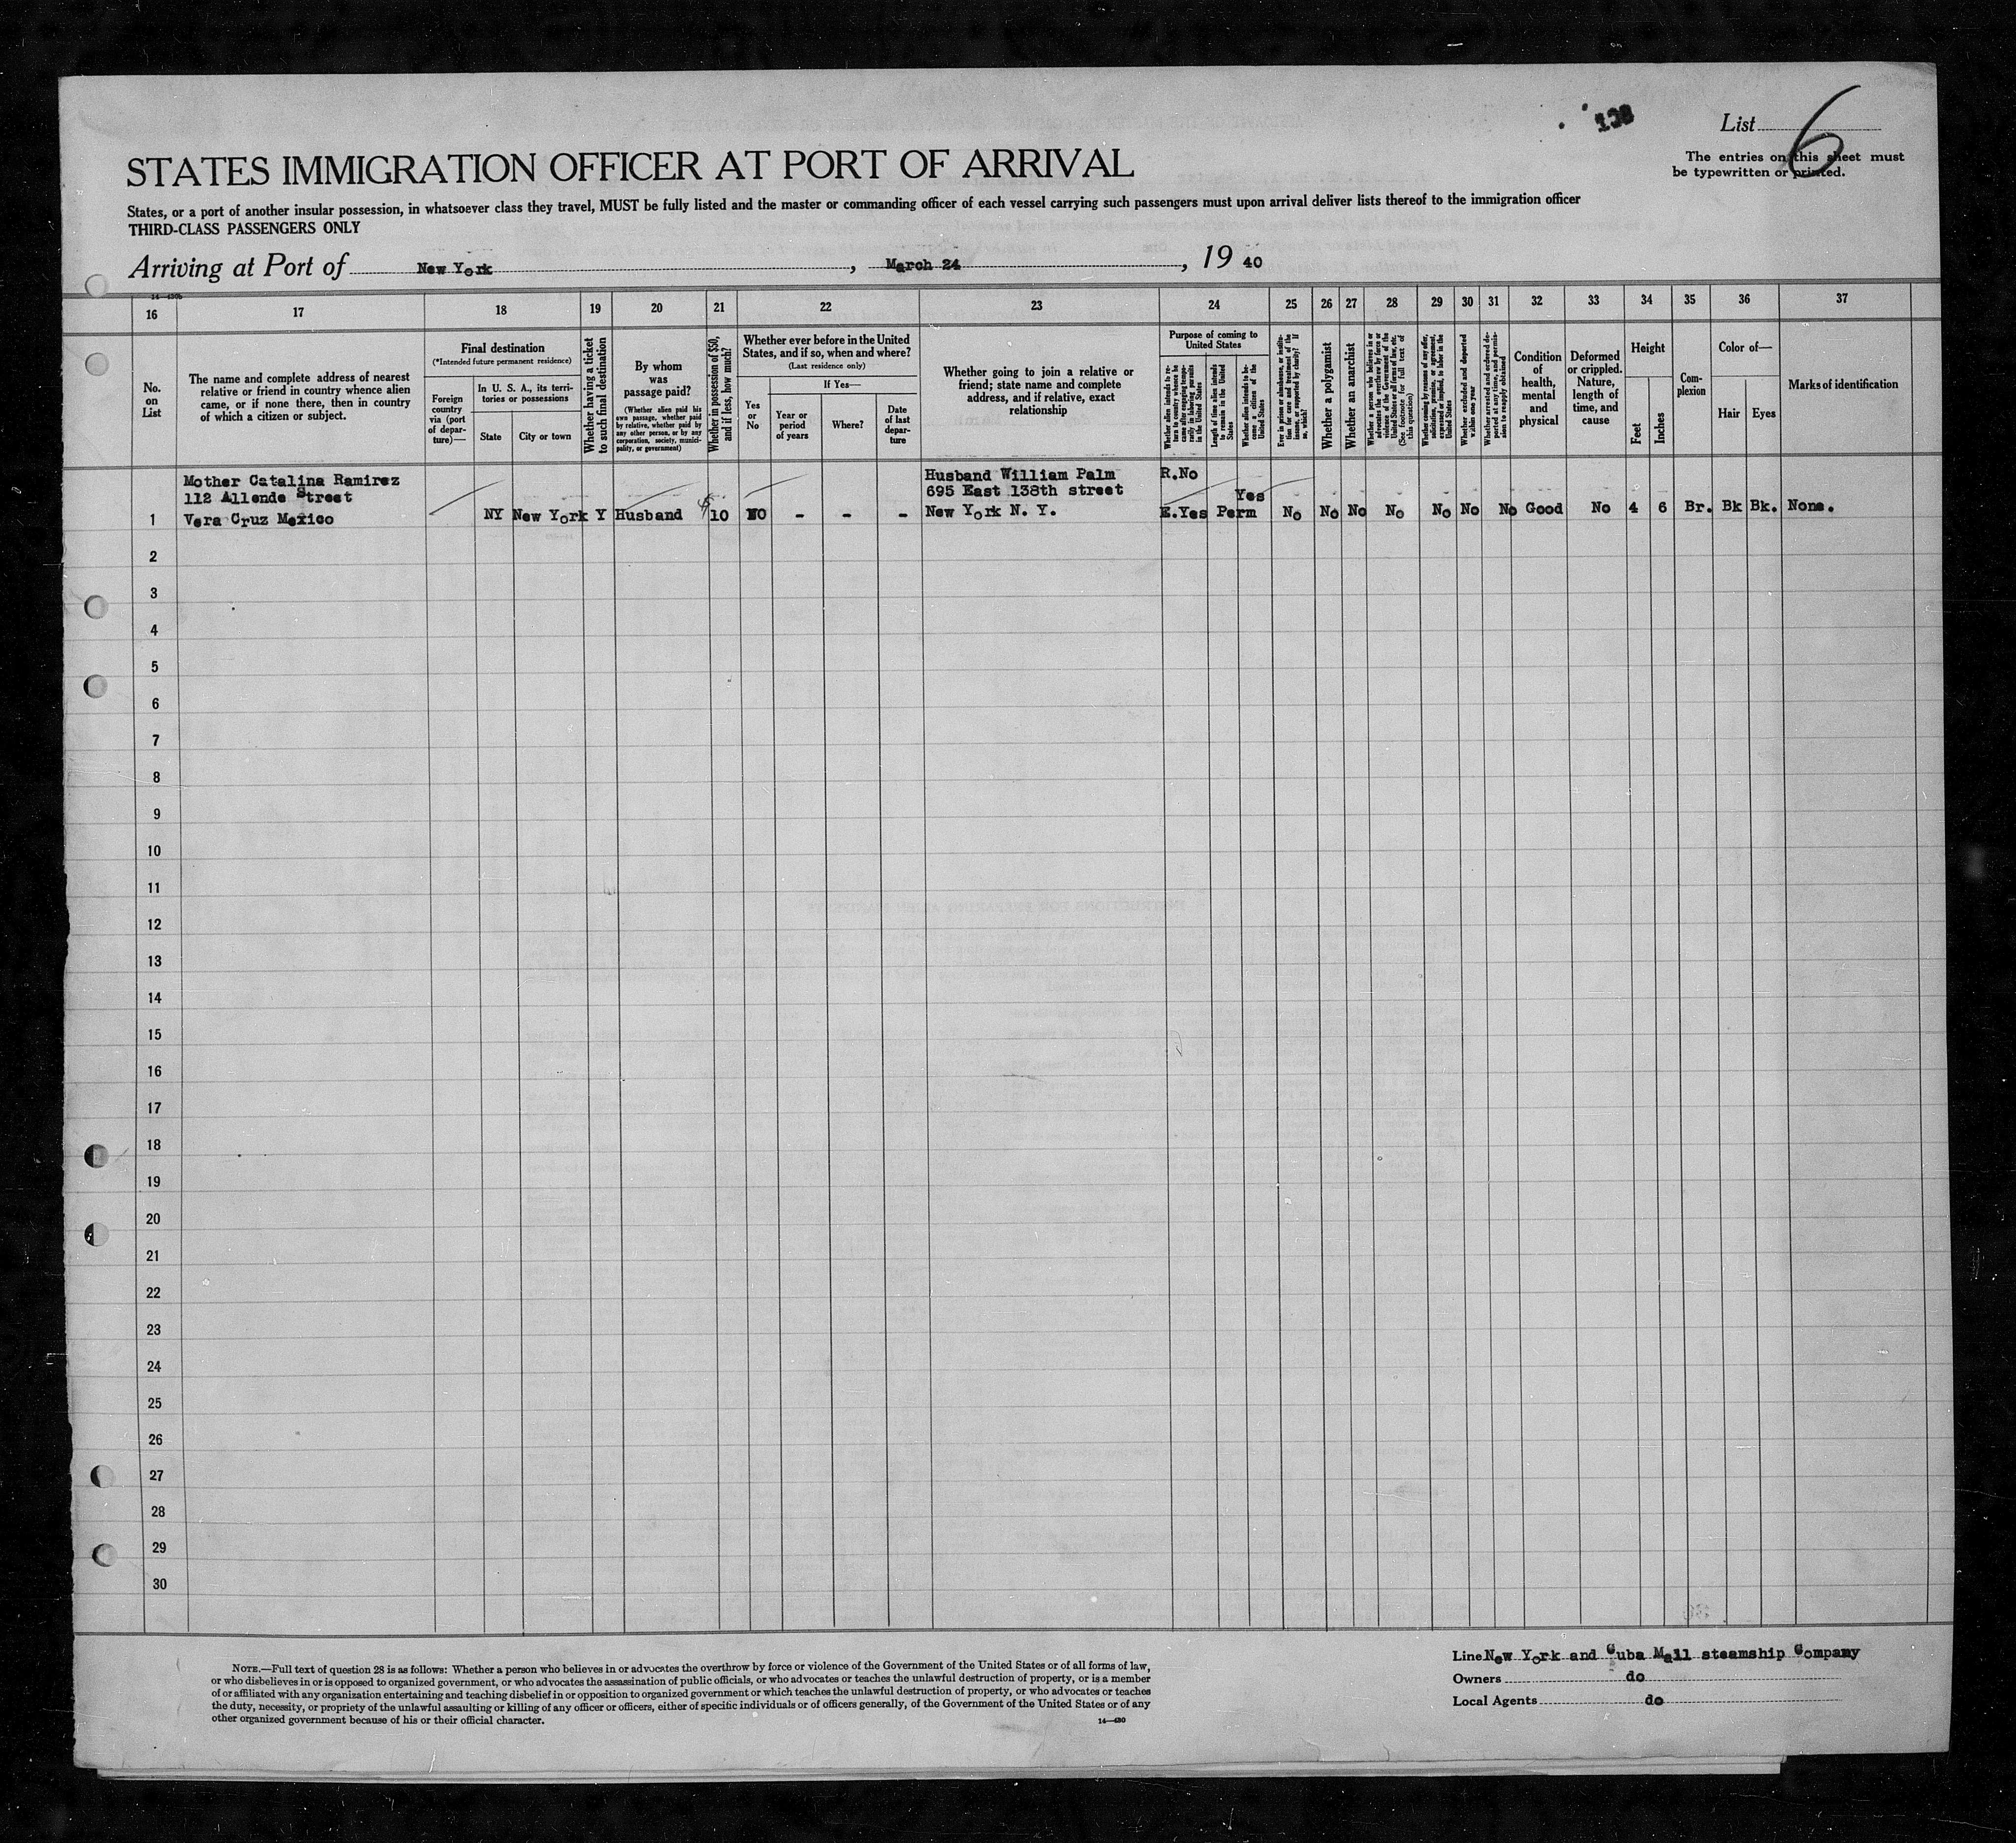 138
List 6
The entries on this sheet must
be typewritten or printed.
STATES IMMIGRATION OFFICER AT PORT OF ARRIVAL
States, or a port of another insular possession, in whatsoever class they travel, MUST be fully listed and the master or commanding officer of each vessel carrying such passengers must upon arrival deliver lists thereof to the immigration officer
THIRD-CLASS PASSENGERS ONLY
Arriving at Port of New York, March 24, 19 40
14—430b
16 17 18 19 20 21 22 23 24 25 26 27 28 29 30 31 32 33 34 35 36 37
No.
on
List
The name and complete address of nearest
relative or friend in country whence alien
came, or if none there, then in country
of which a citizen or subject.
Final destination
(*Intended future permanent residence)
Foreign
country
via (port
of depar-
ture)—
In U. S. A., its terri-
tories or possessions
State
City or town
Whether having a ticket
to such final destination
By whom
was
passage paid?
(Whether alien paid his
own passage, whether paid
by relative, whether paid by
any other person, or by any
corporation, society, munici-
pality, or government)
Whether in possession of $50,
and if less, how much?
Whether ever before in the United
States, and if so, when and where?
(Last residence only)
Yes
or
No
If Yes—
Year or
period
of years
Where?
Date
of last
depar-
ture
Whether going to join a relative or
friend; state name and complete
address, and if relative, exact
relationship
Purpose of coming to
United States
Whether alien intends to re-
turn to country whence he
came after engaging tempo-
rarily in laboring pursuits
in the United States
Length of time alien intends
to remain in the United
States
Whether alien intends to be-
come a citizen of the
United States
Ever in prison or almshouse, or institu-
tion for care and treatment of the
insane, or supported by charity? If
so, which?
Whether a polygamist
Whether an anarchist
Whether a person who believes in or
advocates the overthrow by force or
violence of the Government of the
United States or all forms of law, etc.
(See footnote for full text of
this question)
Whether coming by reasons of any offer,
solicitation, promise, or agreement,
expressed or implied, to labor in the
United States
Whether excluded and deported
within one year
Whether arrested and ordered de-
ported at any time, and permis-
sion to reapply obtained
Condition
of
health,
mental
and
physical
Deformed
or crippled.
Nature,
length of
time, and
cause
Height
Feet
Inches
Com-
plexion
Color of—
Hair
Eyes
Marks of identification
Mother Catalina Ramirez
112 Allende Street
1 Vera Cruz Mexico NY New York Y Husband $10 NO - - -
Husband William Palm
695 East 138th street
New York N. Y.
R.No
Yes
E.Yes Perm No No No No No No No Good No 4 6 Br. Bk Bk. None.
2
3
4
5
6
7
8
9
10
11
12
13
14
15
16
17
18
19
20
21
22
23
24
25
26
27
28
29
30
NOTE.—Full text of question 28 is as follows: Whether a person who believes in or advocates the overthrow by force or violence of the Government of the United States or of all forms of law,
or who disbelieves in or is opposed to organized government, or who advocates the assassination of public officials, or who advocates or teaches the unlawful destruction of property, or is a member
of or affiliated with any organization entertaining and teaching disbelief in or opposition to organized government or which teaches the unlawful destruction of property, or who advocates or teaches
the duty, necessity, or propriety of the unlawful assaulting or killing of any officer or officers, either of specific individuals or of officers generally, of the Government of the United States or of any
other organized government because of his or their official character.
14—430
Line New York and Cuba Mail steamship Company
Owners do
Local Agents do